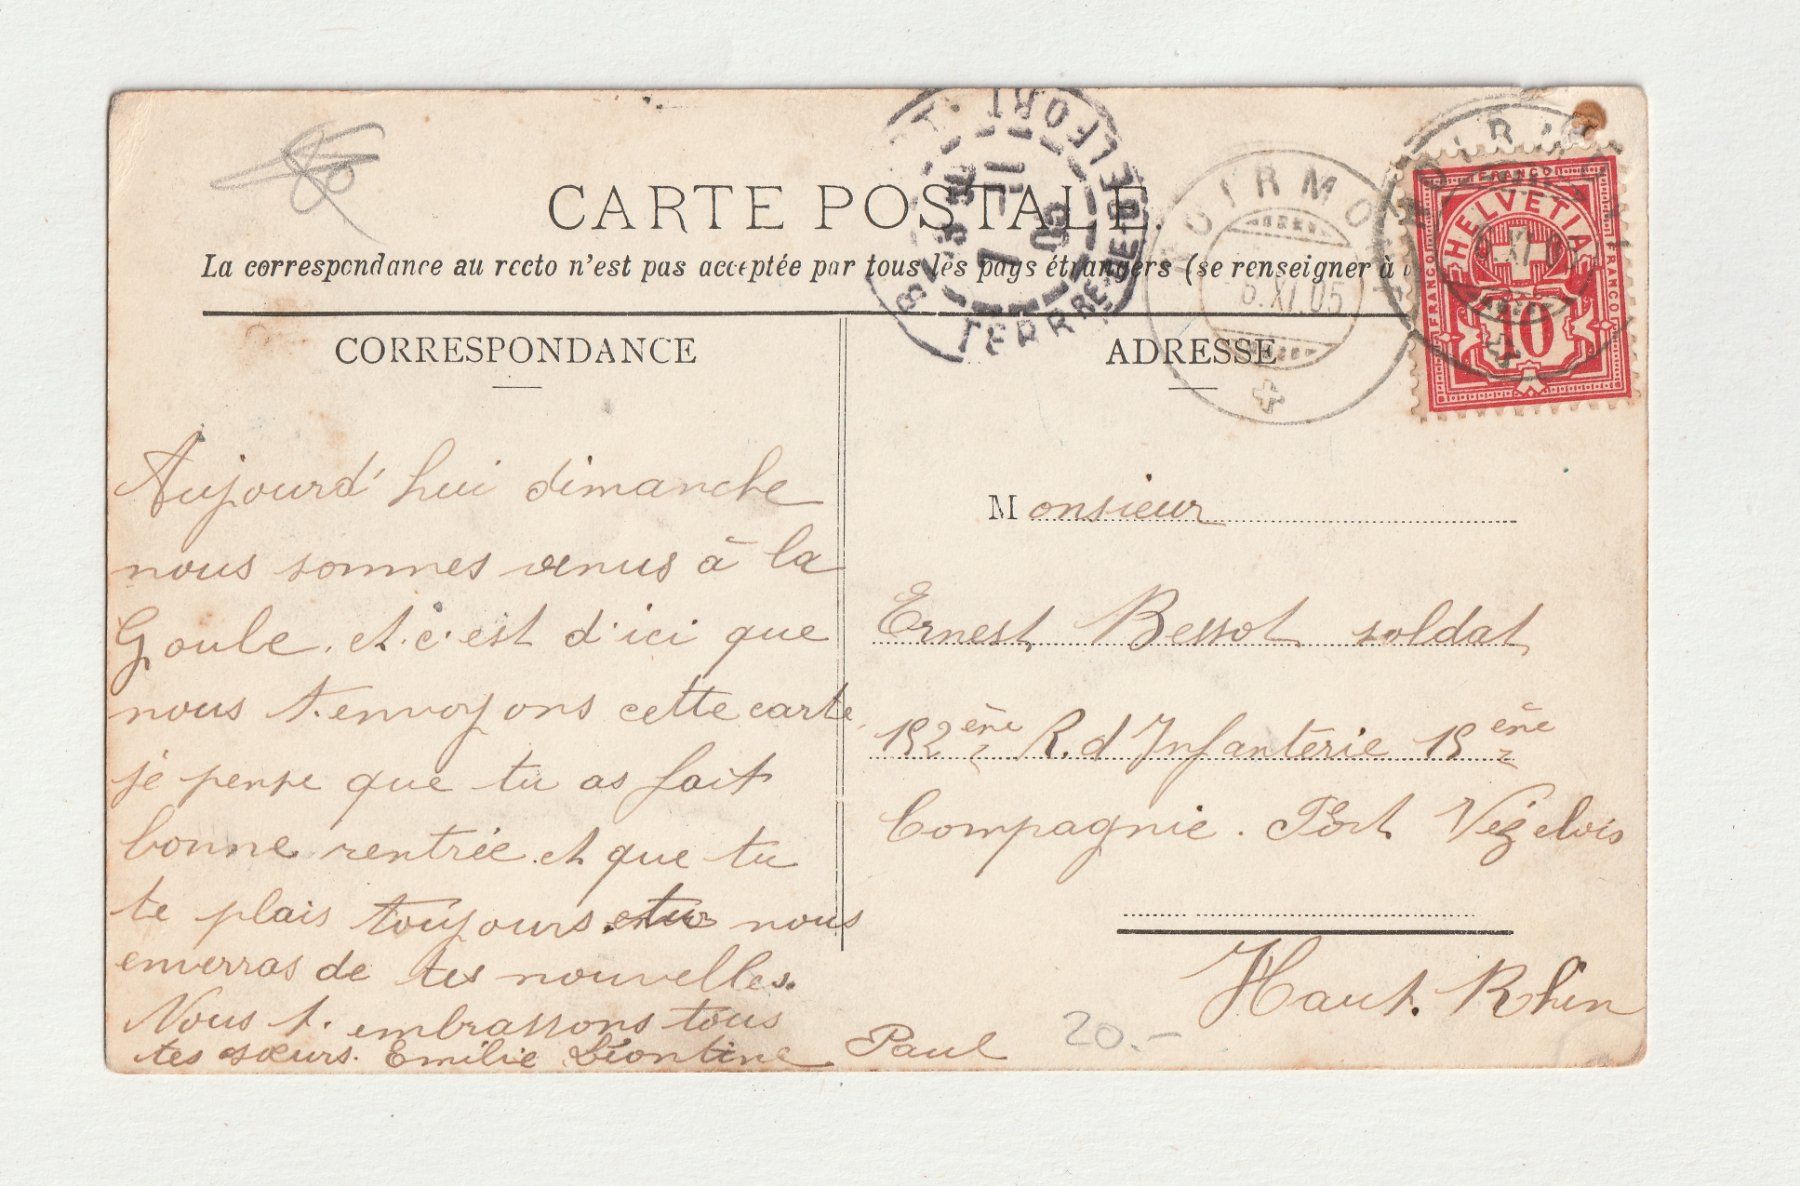 CARTE POSTALE.
La correspondance au recto n'est pas acceptée par tous les pays étrangers (se renseigner à
CORRESPONDANCE
Aujourd'hui dimanche
nous sommes venus à la
Goule. et.c'est d'ici que
nous t.envoyons cette carte
je pense que tu as fait
bonne rentrée.et que tu
te plais toujours. nous
enverras de tes nouvelles.
Nous t. embrassons tous
tes sœurs. Emilie Léontine Paul
ADRESSE
Monsieur
Ernest Bessot soldat
152ème R.d Infanterie 15ème
Compagnie. Fort Vézelois
Haut. Rhin
20.-
BELFORT
TERRRE DE BELFORT
7 - 11
05
NOIRMONT
6.XI.05
NOIRMONT
6.XI.05
HELVETIA
FRANCO
FRANCO
FRANCO
10